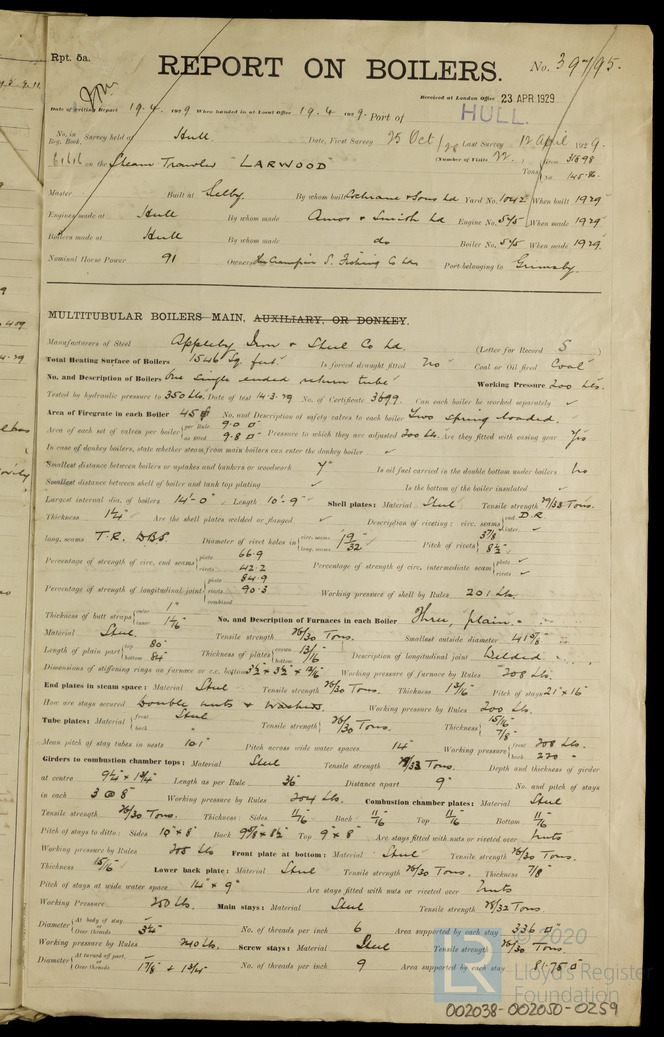 Rpt. 5a.
REPORT ON BOILERS.
No. 39795.
Received at London Office 23 APR. 1929
Date of writing Report 19.4.1929 When handed in at Local Office 19.4.1929. Port of HULL.
No. in Reg. Book. Survey held at Hull Date, First Survey 25 Oct/28 Last Survey 12 April 1929.
on the Steam Trawler "LARWOOD" (Number of Visits 72) Tons
Master Built at Selby By whom built Cochrane & Sons Ld Yard No. 1042 When built 1929
Engines made at Hull By whom made Amos & Smith Ld Engine No. 545 When made 1929
Boilers made at Hull By whom made do Boiler No. 545 When made 1929.
Nominal Horse Power 91 Owners S. Fishing Co Ld Port belonging to Grimsby.
MULTITUBULAR BOILERS—MAIN, AUXILIARY, OR DONKEY.
Manufacturers of Steel Appleby Iron & Steel Co Ld. (Letter for Record S)
Total Heating Surface of Boilers 1546 Sq. feet. Is forced draught fitted No Coal or Oil fired Coal
No. and Description of Boilers One single ended return tube Working Pressure 200 lbs.
Tested by hydraulic pressure to 350 lbs. Date of test 14.3.29 No. of Certificate 3699. Can each boiler be worked separately ✓
Area of Firegrate in each Boiler 45 No. and Description of safety valves to each boiler Two spring loaded.
Area of each set of valves per boiler per Rule 9.0 as fitted 9.8 Pressure to which they are adjusted 200 lbs. Are they fitted with easing gear Yes
In case of donkey boilers, state whether steam from main boilers can enter the donkey boiler ✓
Smallest distance between boilers or uptakes and bunkers or woodwork 7" Is oil fuel carried in the double bottom under boilers No
Smallest distance between shell of boiler and tank top plating ✓ Is the bottom of the boiler insulated ✓
Largest internal dia. of boilers 14'-0" Length 10'-9" Shell plates: Material Steel Tensile strength 29/33 Tons.
Thickness 1¼" Are the shell plates welded or flanged ✓ Description of riveting: circ. seams end D.R inter. ✓
long. seams T.R. DBS Diameter of rivet holes in circ. seams long. seams 1 9/32 Pitch of rivets 3 7/8 8½
Percentage of strength of circ. end seams plate 66.9 rivets 42.2 Percentage of strength of circ. intermediate seam plate ✓ rivets ✓
Percentage of strength of longitudinal joint plate 84.9 rivets 90.3 combined Working pressure of shell by Rules 201 lbs.
Thickness of butt straps outer 1" inner 1 1/16" No. and Description of Furnaces in each Boiler Three, plain.
Material Steel. Tensile strength 26/30 Tons. Smallest outside diameter 41 5/8"
Length of plain part top 80" bottom 84" Thickness of plates crown bottom 13/16 Description of longitudinal joint Welded
Dimensions of stiffening rings on furnace or c.c. bottom 3½ × 3½ × 13/16 Working pressure of furnace by Rules 208 lbs.
End plates in steam space: Material Steel Tensile strength 26/30 Tons. Thickness 1 3/16" Pitch of stays 21" × 16"
How are stays secured Double nuts & Washers. Working pressure by Rules 200 lbs.
Tube plates: Material front back Steel Tensile strength 26/30 Tons. Thickness 15/16" 7/8"
Mean pitch of stay tubes in nests 10.1 Pitch across wide water spaces 14" Working pressure front 208 lbs. back 220 "
Girders to combustion chamber tops: Material Steel Tensile strength 29/33 Tons. Depth and thickness of girder
at centre 9¼" × 1¾" Length as per Rule 36" Distance apart 9" No. and pitch of stays
in each 3 @ 8" Working pressure by Rules 204 lbs. Combustion chamber plates: Material Steel
Tensile strength 26/30 Tons. Thickness: Sides 11/16 Back 11/16 Top 11/16 Bottom 11/16
Pitch of stays to ditto: Sides 10" × 8" Back 9 5/8 × 8½ Top 9" × 8" Are stays fitted with nuts or riveted over Nuts
Working pressure by Rules 205 lbs Front plate at bottom: Material Steel Tensile strength 26/30 Tons.
Thickness 15/16" Lower back plate: Material Steel Tensile strength 26/30 Tons. Thickness 7/8"
Pitch of stays at wide water space 14" × 9" Are stays fitted with nuts or riveted over Nuts
Working Pressure 250 lbs. Main stays: Material Steel Tensile strength 28/32 Tons.
Diameter At body of stay, or Over threads 3¼" No. of threads per inch 6 Area supported by each stay 336
Working pressure by Rules 240 lbs. Screw stays: Material Steel Tensile strength 26/30 Tons.
Diameter At turned off part, or Over threads 1 7/8 & 1¾" No. of threads per inch 9 Area supported by each stay 81.75
© 2020
Lloyd's Register
Foundation
002038-002050-0259